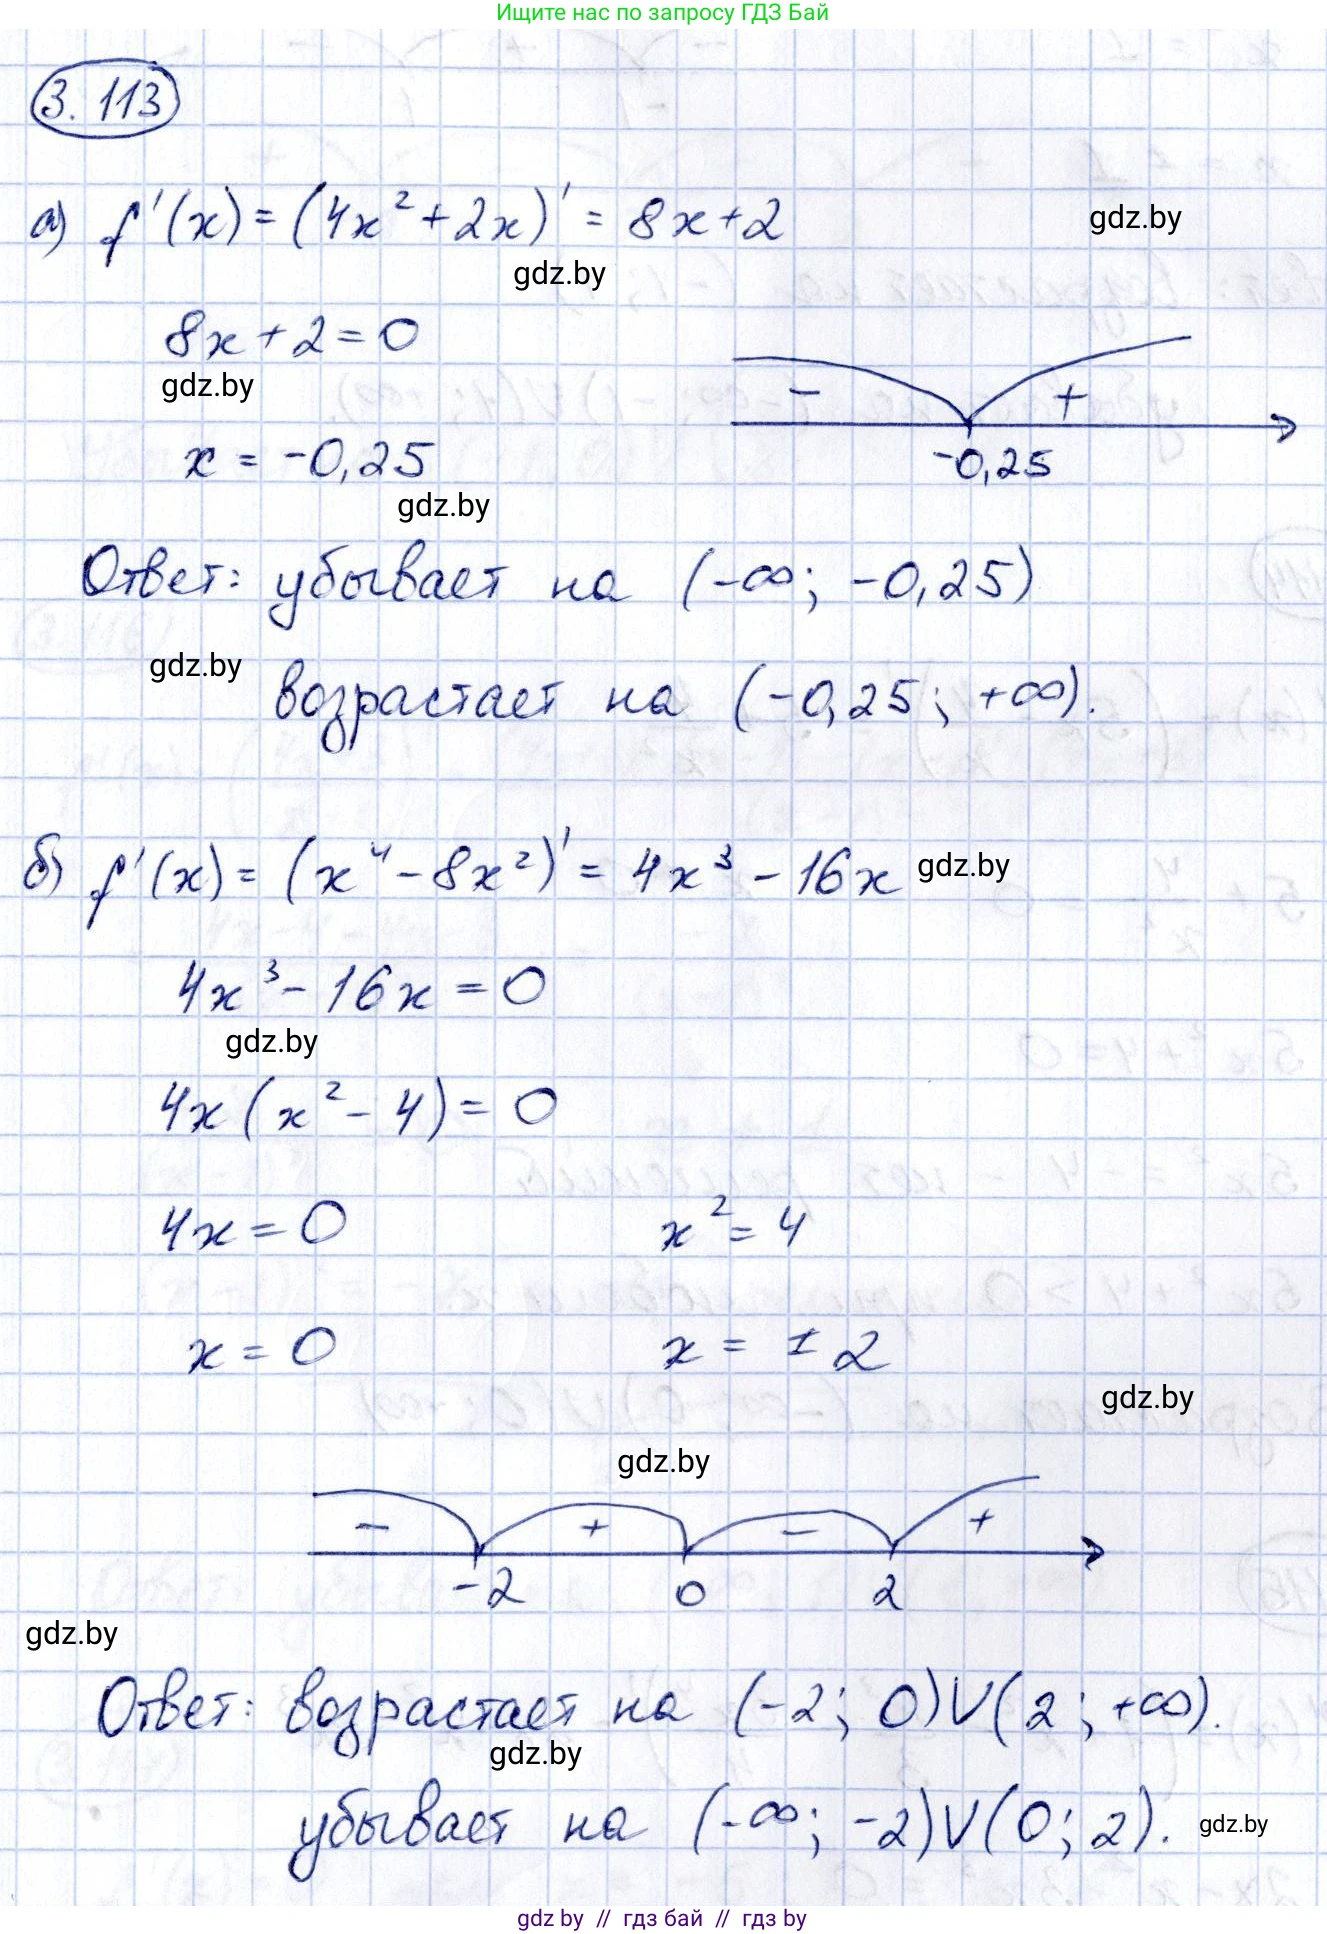 Ищите нас по запросу ГДЗ Бай
3.113
а) f'(x) = (4x² + 2x)' = 8x + 2
gdz.by
gdz.by
8x + 2 = 0
gdz.by
- +
x = -0,25
-0,25
gdz.by
Ответ: убывает на (-∞; -0,25)
gdz.by
возрастает на (-0,25; +∞).
б) f'(x) = (x⁴ - 8x²)' = 4x³ - 16x
gdz.by
4x³ - 16x = 0
gdz.by
4x(x² - 4) = 0
4x = 0 x² = 4
x = 0 x = ±2
gdz.by
gdz.by
- + - +
-2 0 2
gdz.by
Ответ: возрастает на (-2; 0)∪(2; +∞).
gdz.by
убывает на (-∞; -2)∪(0; 2).
gdz.by
gdz by // гдз бай // гдз by